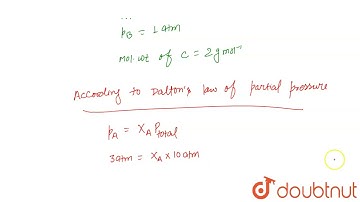 ...
PB = 1 atm
mol. wt of C = 2 g mol⁻¹
According to Dalton's law of partial pressure
PA = XA Ptotal
3 atm = XA × 10 atm
doubtnut